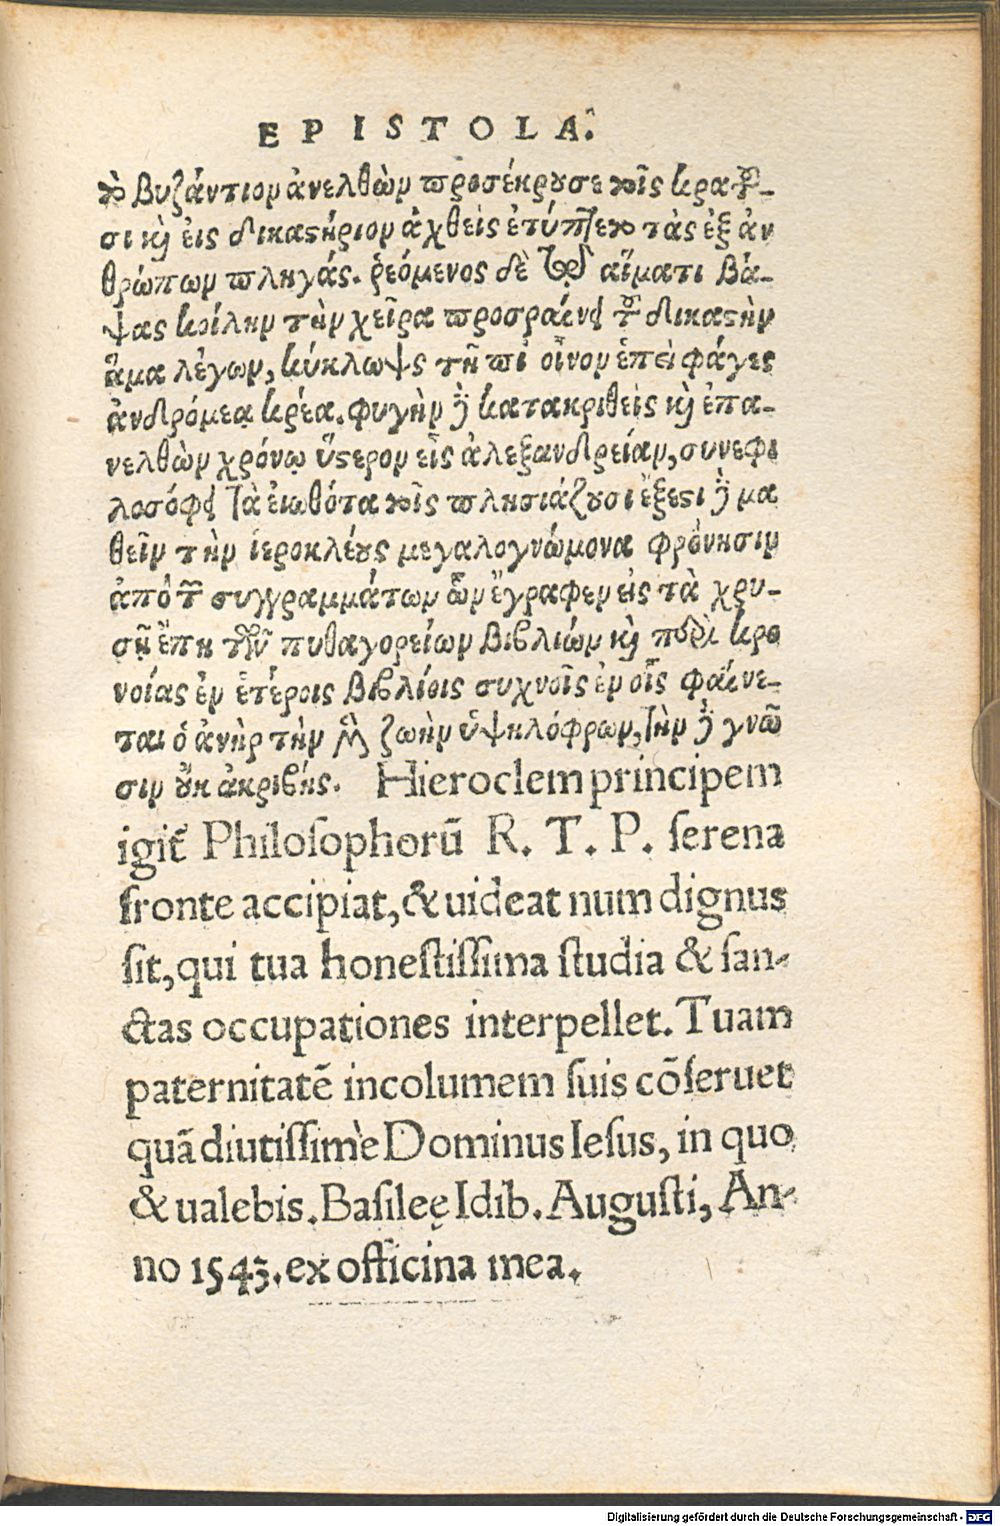 EPISTOLA.
το βυζάντιον ἀνελθὼν προσέκρουσε τοῖς κρατοῦ-
σι καὶ εἰς δικαστήριον ἀχθεὶς ἐτύπτετο τὰς ἐξ ἀν
θρώπων πληγάς. ῥεόμενος δὲ τῷ αἵματι βά-
ψας κοίλην τὴν χεῖρα προσραίνει τὸν δικαστὴν
ἅμα λέγων, κύκλωψ τῆ πίε οἶνον ἐπεὶ φάγες
ἀνδρόμεα κρέα. φυγὴν δὲ κατακριθεὶς καὶ ἐπα-
νελθὼν χρόνῳ ὕστερον εἰς ἀλεξανδρείαν, συνεφι
λοσόφει τὰ εἰωθότα τοῖς πλησιάζουσι ἔξεστι δὲ μα
θεῖν τὴν ἱεροκλέους μεγαλογνώμονα φρόνησιν
ἀπὸ τῶν συγγραμμάτων ὧν ἔγραφεν εἰς τὰ χρυ-
σῆ ἔπη τῶν πυθαγορείων βιβλίων καὶ περὶ προ
νοίας ἐν ἑτέροις βιβλίοις συχνοῖς ἐν οἷς φαίνε-
ται ὁ ἀνὴρ τὴν μὲν ζωὴν ὑψηλόφρων, τὴν δὲ γνῶ
σιν οὐκ ἀκριβής. Hieroclem principem
igit̃ Philosophorũ R. T. P. serena
fronte accipiat, & uideat num dignus
sit, qui tua honestissima studia & san-
ctas occupationes interpellet. Tuam
paternitatẽ incolumem suis cõseruet
quã diutissimè Dominus Iesus, in quo
& ualebis. Basileę Idib. Augusti, An-
no 1543. ex officina mea.
Digitalisierung gefördert durch die Deutsche Forschungsgemeinschaft - DFG